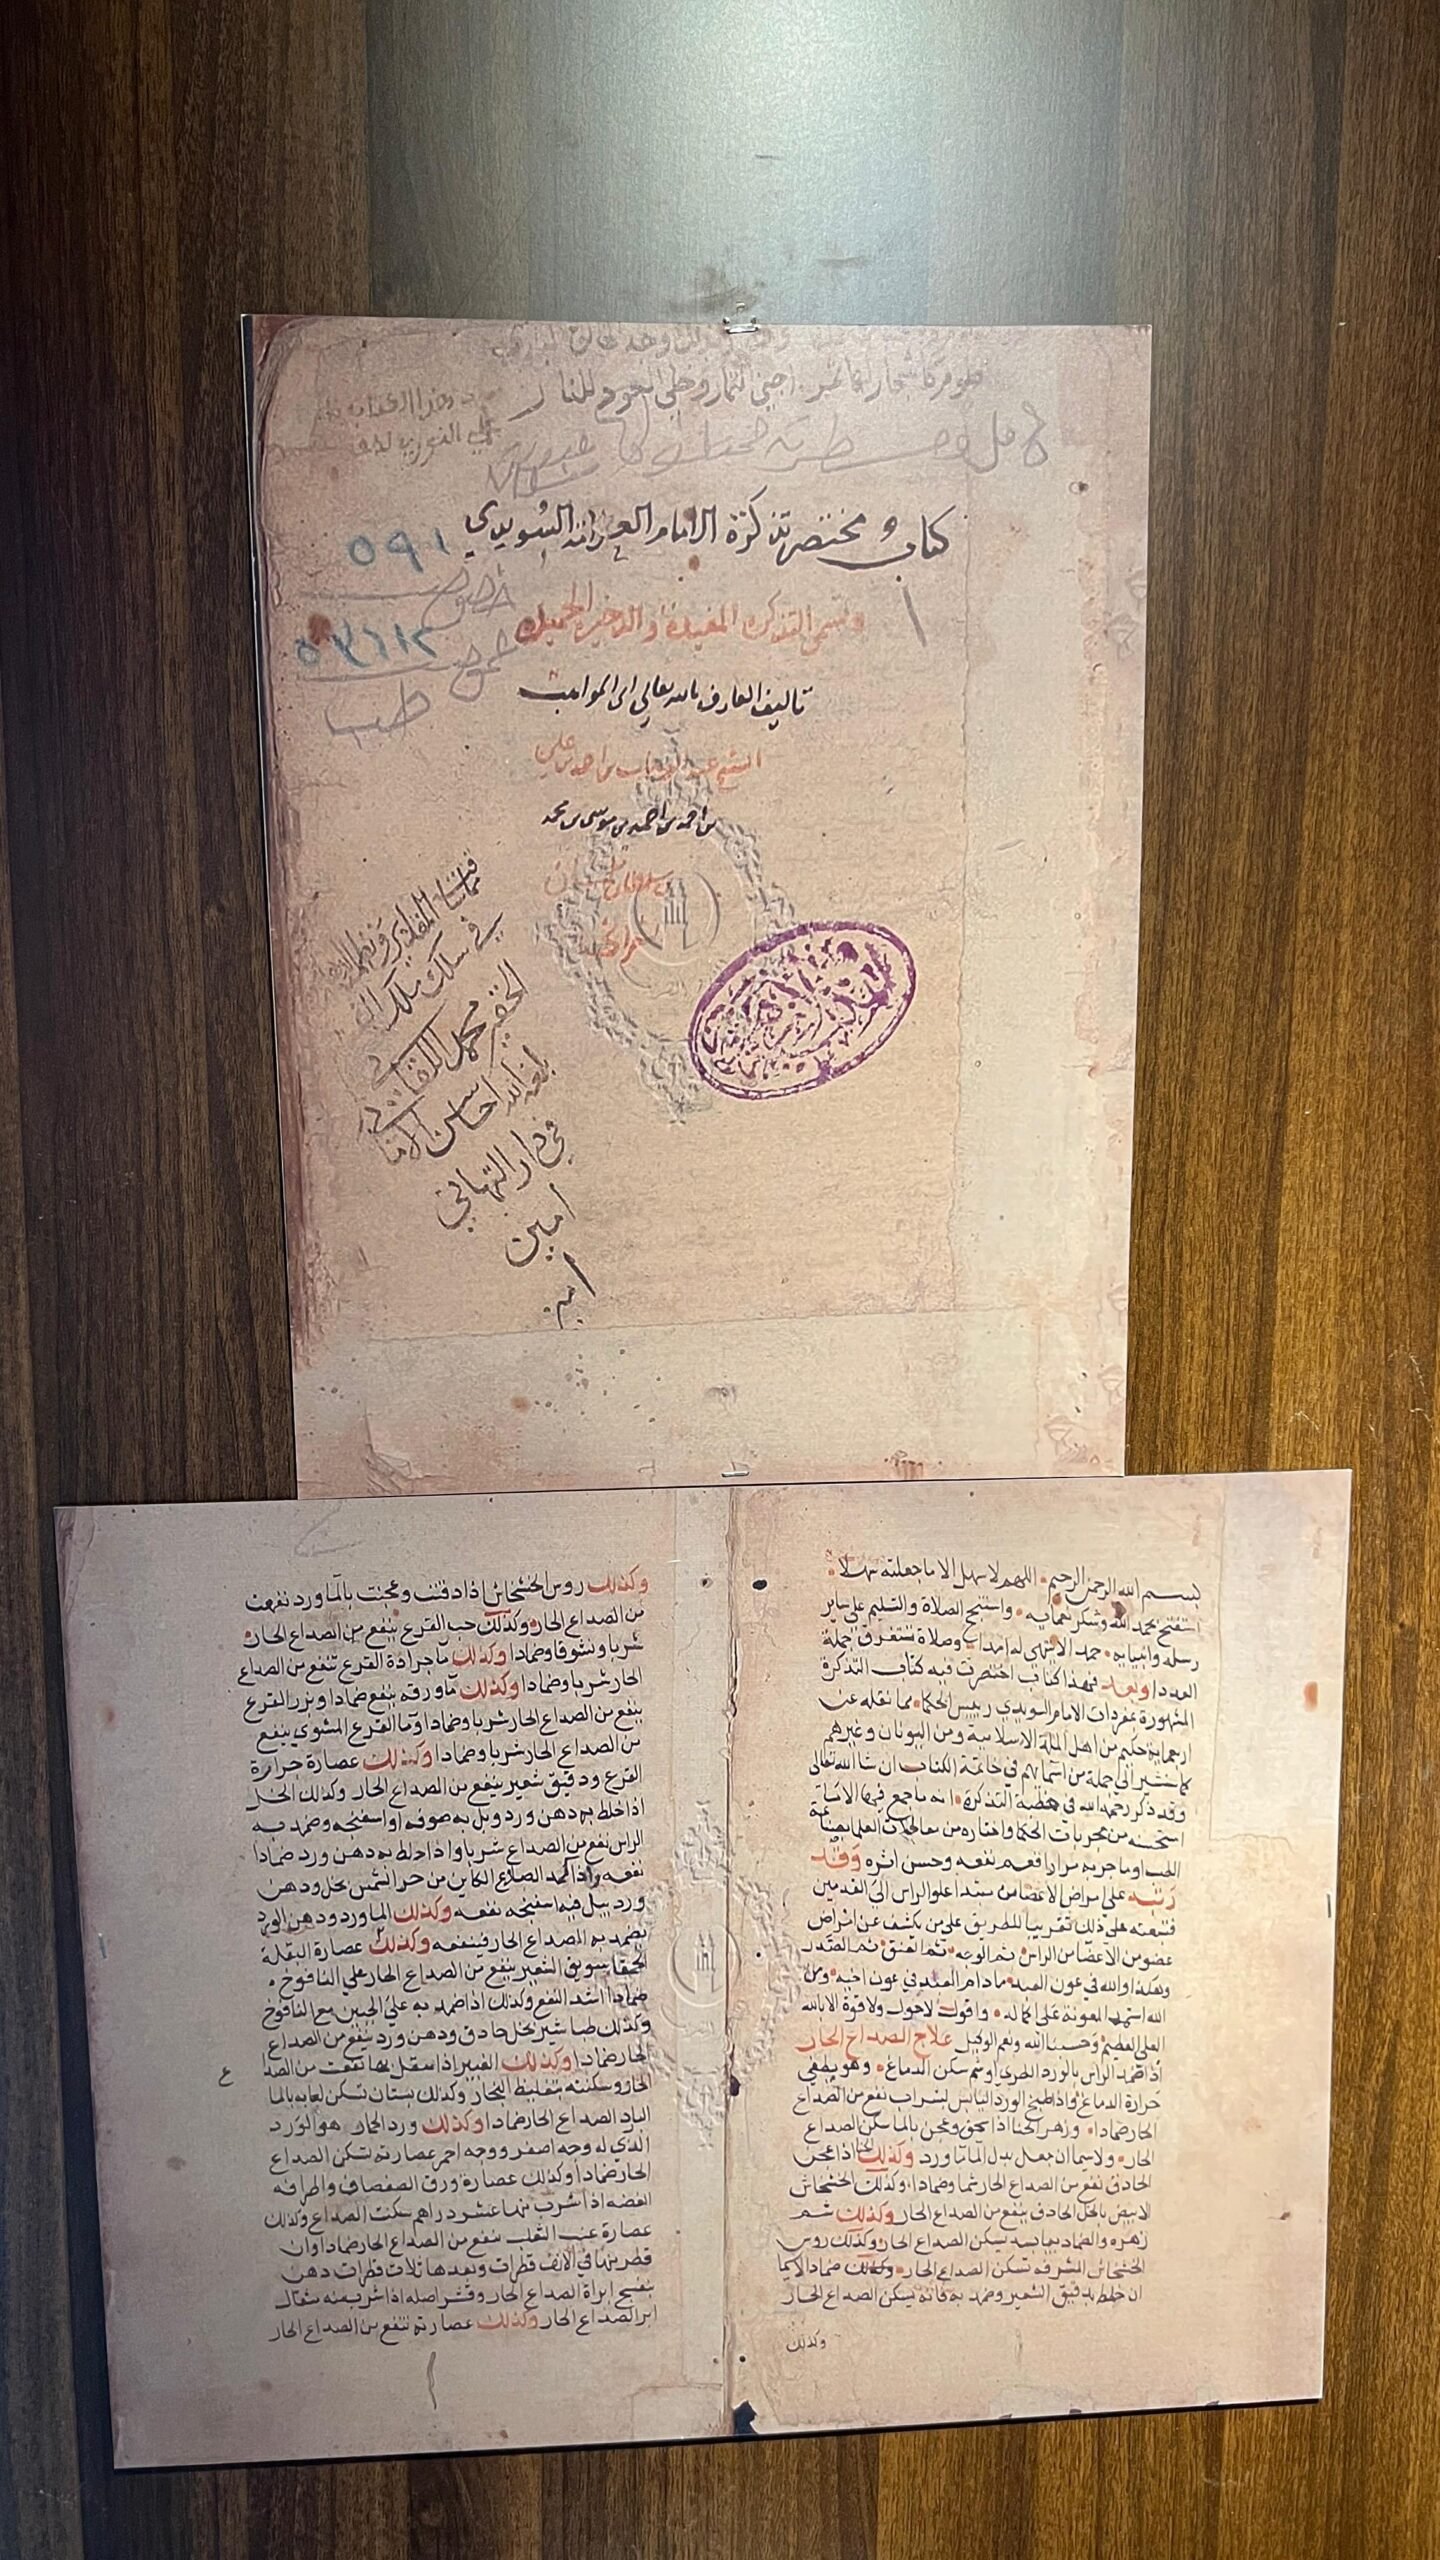 فلو ورقا شجار اكا تمر اجني ثمار وخلي العود للنار
كتاب مختصر تذكرة الامام العلامة السويدي
وتسمى التذكرة المفيدة والذخيرة الحميدة
٥٩١
خصوص
٥٣٦١٢
عموم
طب
تاليف العارف بالله تعالي ابى المواهب
الشيخ عبد الوهاب بن احمد بن علي
بن احمد بن احمد بن موسى بن محمد
في سلك ملك
الحقير محمد اللقاني
بلغه الله احاسن الاماني
في دار التهاني
امين
امين
بسم الله الرحمن الرحيم اللهم لا سهل الا ما جعلته سهلا
استفتح بحمد الله وشكر نعمايه واستنجح الصلاة والتسليم على ساير
رسله وانبيايه حمدا لا ينتهى له امدا وصلاة تستغرق جملة
العددا وبعد فهذا كتاب اختصرت فيه كتاب التذكرة
المشهورة بمفردات الامام السويدي رييس الحكما مما نقله عن
اربعماية حكيم من اهل الملة الاسلامية ومن اليونان وغيرهم
كما سنشير الي جملة من اسمايهم في خاتمة الكتاب ان شا الله تعالى
وقد ذكر رحمه الله في خطبة التذكرة انه ما جمع فيها الا ما
استحسنه من مجربات الحكما واختاره من معالجات العلما بصناعة
الطب او ما جربه مرارا فعم نفعه وحسن اثره وقد
رتبه على امراض الاعضا من مبتدا اعلو الراس الي القدمين
فتبعته على ذلك تقريبا للطريق على من يكشف عن امراض
عضو من الاعضا من الراس ثم الوجه ثم العنق ثم الصدر
وهكذا والله في عون العبد ما دام العبد في عون اخيه ومن
الله استمد المعونة على اكماله واقول لا حول ولا قوة الا بالله
العلي العظيم وحسبنا الله ونعم الوكيل علاج الصداع الحار
اذا ضمد الراس بالورد الطري او شم سكن الدماغ وهو يطفي
حرارة الدماغ واذا طبخ الورد اليابس بشراب نفع من الصداع
الحار ضمادا وزهر الحنا اذا سحق وعجن بالما سكن الصداع
الحار ولاسيما ان جعل بدل الما ما ورد وكذلك الحنا اذا عجن
الحادق نفع من الصداع الحار شما وضمادا وكذلك الخشخاش
الابيض بالخل الحادق ينفع من الصداع الحار وكذلك شم
زهره والضماد بيابسه يسكن الصداع الحار وكذلك روس
الخشخاش الشرفه تسكن الصداع الحار وكذلك ضمادا لاسيما
ان خلط بدقيق الشعير وضمد به فانه يسكن الصداع الحار
وكذلك
وكذلك روس الخشخاش اذا دقت وعجنت بالما ورد نفعت
من الصداع الحار وكذلك حب القرع ينفع من الصداع الحار
شربا ونشوقا وضمادا وكذلك ما جرادة القرع تنفع من الصداع
الحار شربا وضمادا وكذلك ما ورقه ينفع ضمادا وبزر القرع
ينفع من الصداع الحار شربا وضمادا وما القرع المشوي ينفع
من الصداع الحار شربا وضمادا وكذلك عصارة جرارة
القرع ودقيق شعير ينفع من الصداع الحار وكذلك الخل
اذا خلط به دهن ورد وبل به صوفه او اسفنجه وضمد به
الراس نفع من الصداع شربا واذا خلط به دهن ورد ضمادا
نفعه واذا كمد الصداع الكاين من حر الشمس بخل ودهن
ورد يبل فيه اسفنجه نفعه وكذلك الما ورد ودهن الورد
يضمد به الصداع الحار فينفعه وكذلك عصارة البقلة
الحمقا بسويق الشعير ينفع من الصداع الحار علي النافوخ
ضمادا اشد النفع وكذلك اذا ضمد به علي الجبين مع النافوخ
وكذلك طباشير بخل حادق ودهن ورد ينفع من الصداع
الحار ضمادا وكذلك الغبيرا اذا تنقل بها نفعت من الصدا
ع
الحار وسكنته بتغليظ البخار وكذلك بستان تسكن لعابه بالما
البارد الصداع الحار ضمادا وكذلك ورد الحمار هو الورد
الذي له وجه اصفر ووجه احمر عصارته تسكن الصداع
الحار ضمادا وكذلك عصارة ورق الصفصاف واطرافه
الغضه اذا شرب منها عشر دراهم سكنت الصداع وكذلك
عصارة عنب الثعلب ينفع من الصداع الحار ضمادا وان
قطر منها في الانف قطرات وبعدها ثلاث قطرات دهن
بنفسج ابراة الصداع الحار وقشر اصله اذا شرب منه مثقال
ابرا الصداع الحار وكذلك عصارته تنفع من الصداع الحار